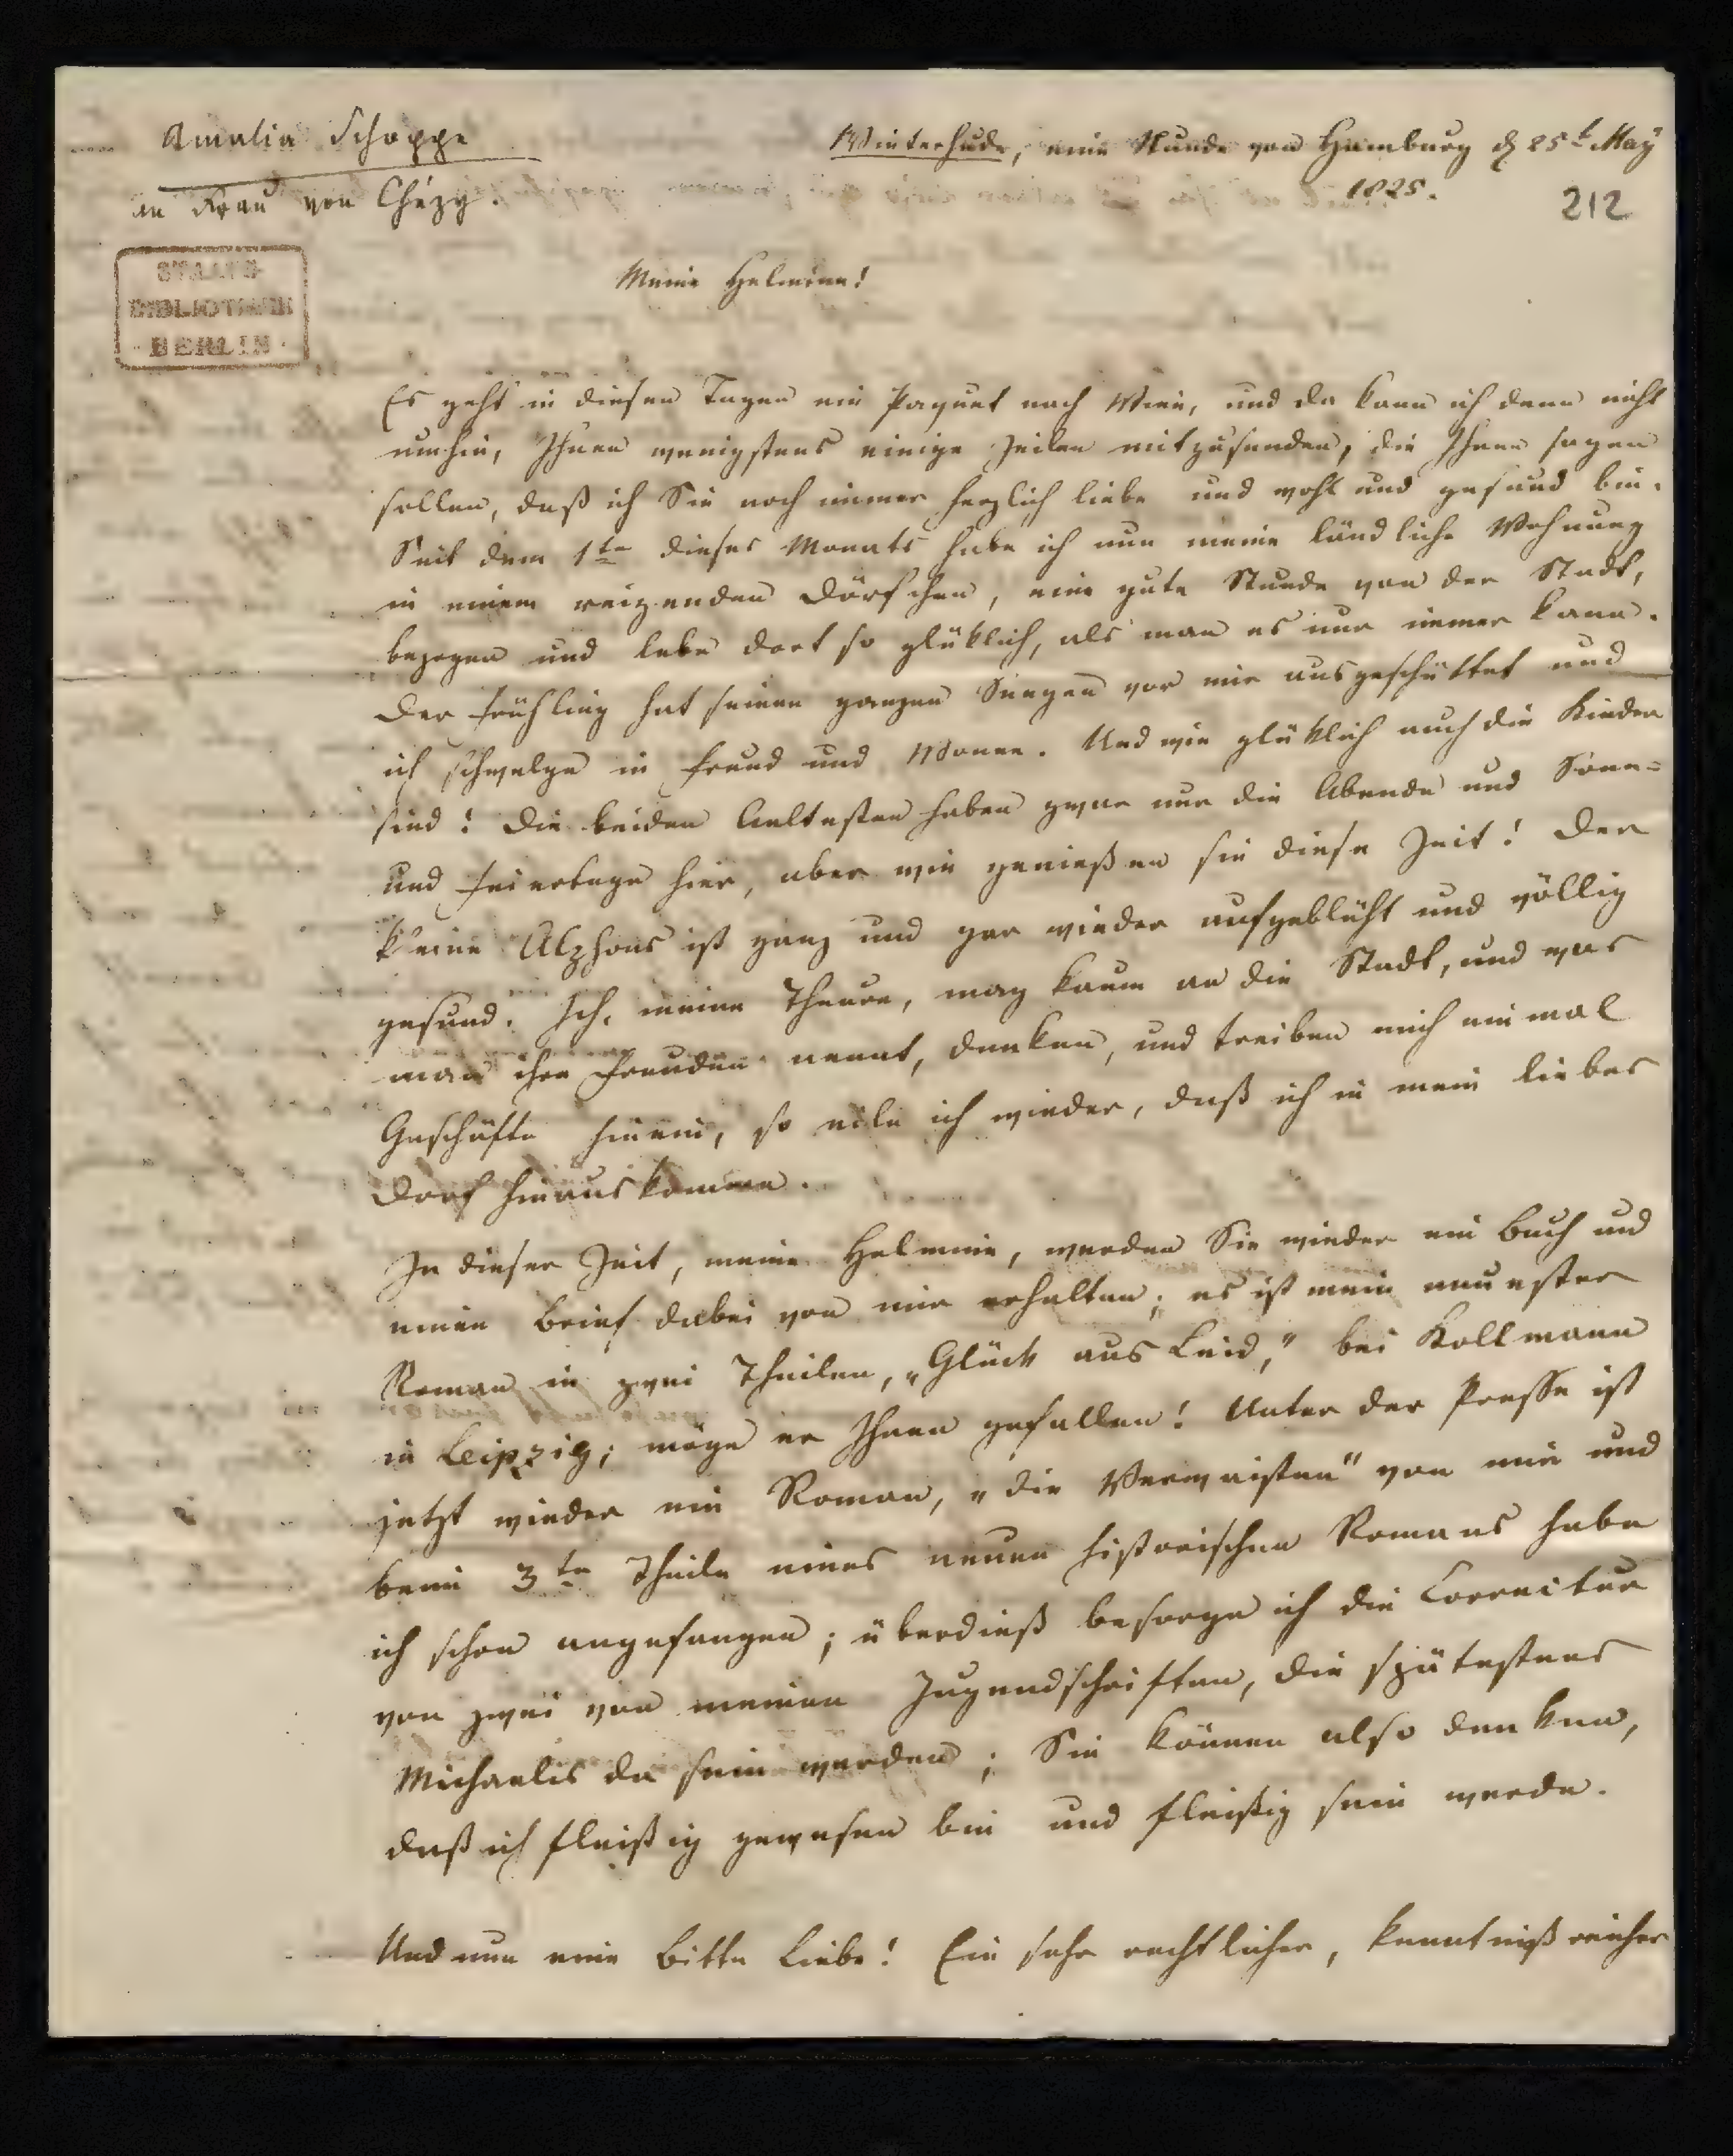 Amalia Schoppe
an Frau von Chézy.
Winterhude, eine Stunde von Hamburg d 25t May
1825.
212
STAATS-
BIBLIOTHEK
BERLIN
Meine Helmina!
Es geht in diesen Tagen ein Paquet nach Wien, und da kann ich denn nicht
umhin, Ihnen wenigstens einige Zeilen mitzusenden, die Ihnen sagen
sollen, daß ich Sie noch immer herzlich liebe und wohl und gesund bin.
Seit dem 1ten dieses Monats habe ich nun meine ländliche Wohnung
in einem reizenden Dörfchen, eine gute Stunde von der Stadt,
bezogen und lebe dort so glüklich, als man es nur immer kann.
Der Frühling hat seinen ganzen Seegen vor mir ausgeschüttet und
ich schwelge in Freud und Wonne. Und wie glüklich auch die Kinder
sind! Die beiden Aeltesten haben zwar nur die Abende und Sonn-
und Feiertage hier, aber wie genießen sie diese Zeit! Der
kleine Alphons ist ganz und gar wieder aufgeblüht und völlig
gesund. Ich, meine Theure, mag kaum an die Stadt, und was
man ihre Freuden nennt, denken, und treiben mich einmal
Geschäfte hinein, so eile ich wieder, daß ich in mein liebes
Dorf hinaus komme.
In dieser Zeit, meine Helmine, werden Sie wieder ein Buch und
einen Brief dabei von mir erhalten; es ist mein neuester
Roman in zwei Theilen, „Glück aus Leid," bei Kollmann
in Leipzig; möge er Ihnen gefallen! Unter der Presse ist
jetzt wieder ein Roman, „die Verwaisten" von mir und
beim 3ten Theile eines neuen historischen Romans habe
ich schon angefangen; überdieß besorge ich die Correctur
von zwei von meinen Jugendschriften, die spätestens
Michaelis da sein werden; Sie können also denken,
daß ich fleißig gewesen bin und fleißig sein werde.
Und nun eine Bitte Liebe! Ein sehr rechtlicher, kenntnißreicher